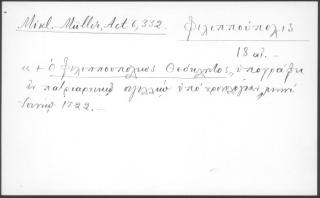 Mikl. Müller, Act 6, 332. Φιλιππούπολις
18 αἰ. –
« + ὁ Φιλιππουπόλεως Θεόκλητος, ὑπογράφει
ἐν πατριαρχικῷ σιγιλλίῳ ὑπὸ χρονολογίαν, μηνὶ
Ἰουνίῳ 1722. –